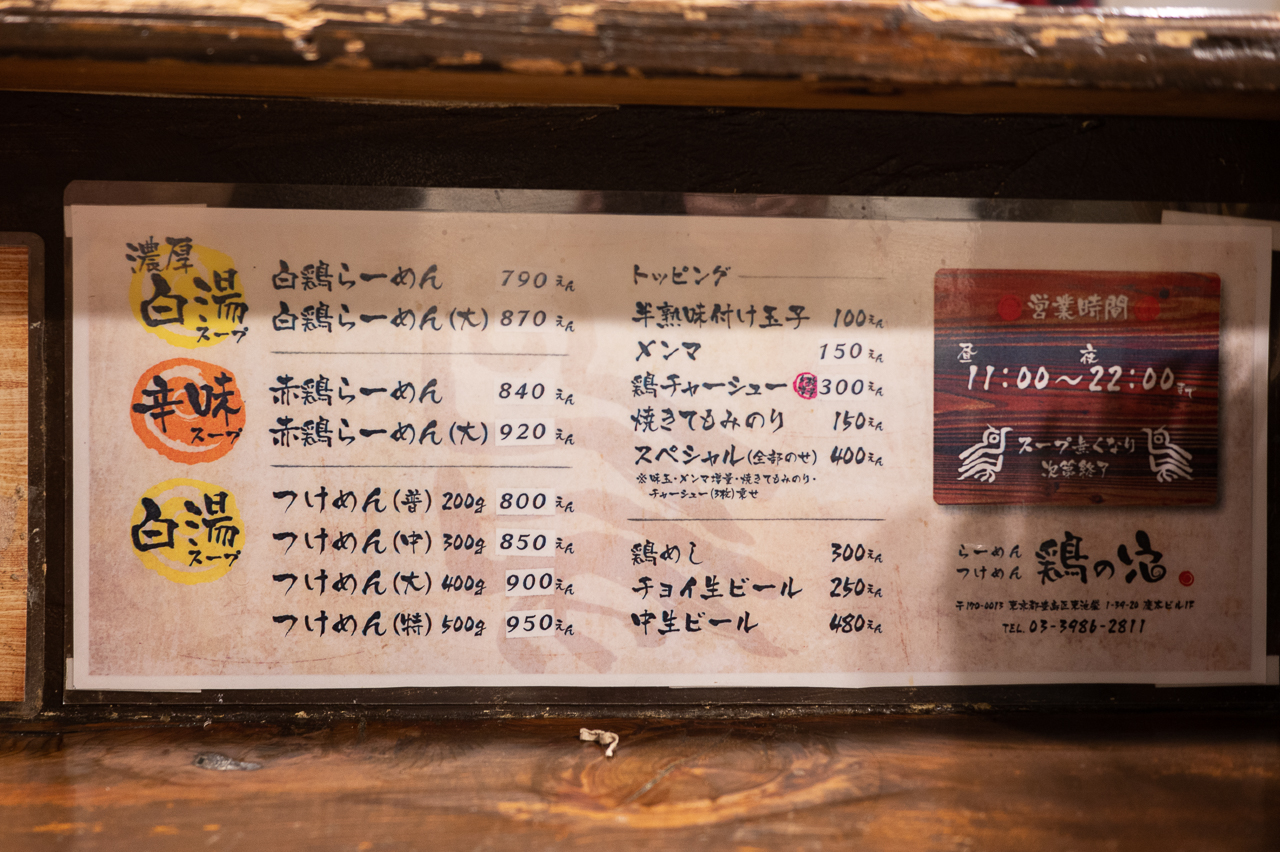 濃厚
白湯
スープ
白鶏らーめん 790えん
白鶏らーめん(大) 870えん
辛味
スープ
赤鶏らーめん 840えん
赤鶏らーめん(大) 920えん
白湯
スープ
つけめん(普) 200g 800えん
つけめん(中) 300g 850えん
つけめん(大) 400g 900えん
つけめん(特) 500g 950えん
トッピング
半熟味付け玉子 100えん
メンマ 150えん
鶏チャーシュー 300えん
焼きてもみのり 150えん
スペシャル(全部のせ) 400えん
※味玉・メンマ増量・焼きてもみのり・
チャーシュー(3枚)乗せ
鶏めし 300えん
チョイ生ビール 250えん
中生ビール 480えん
営業時間
昼 夜
11:00～22:00まで
スープ無くなり
次第終了
らーめん
つけめん
鶏の宿
〒170-0013 東京都豊島区東池袋 1-39-20 慶太ビル1F
TEL.03-3986-2811